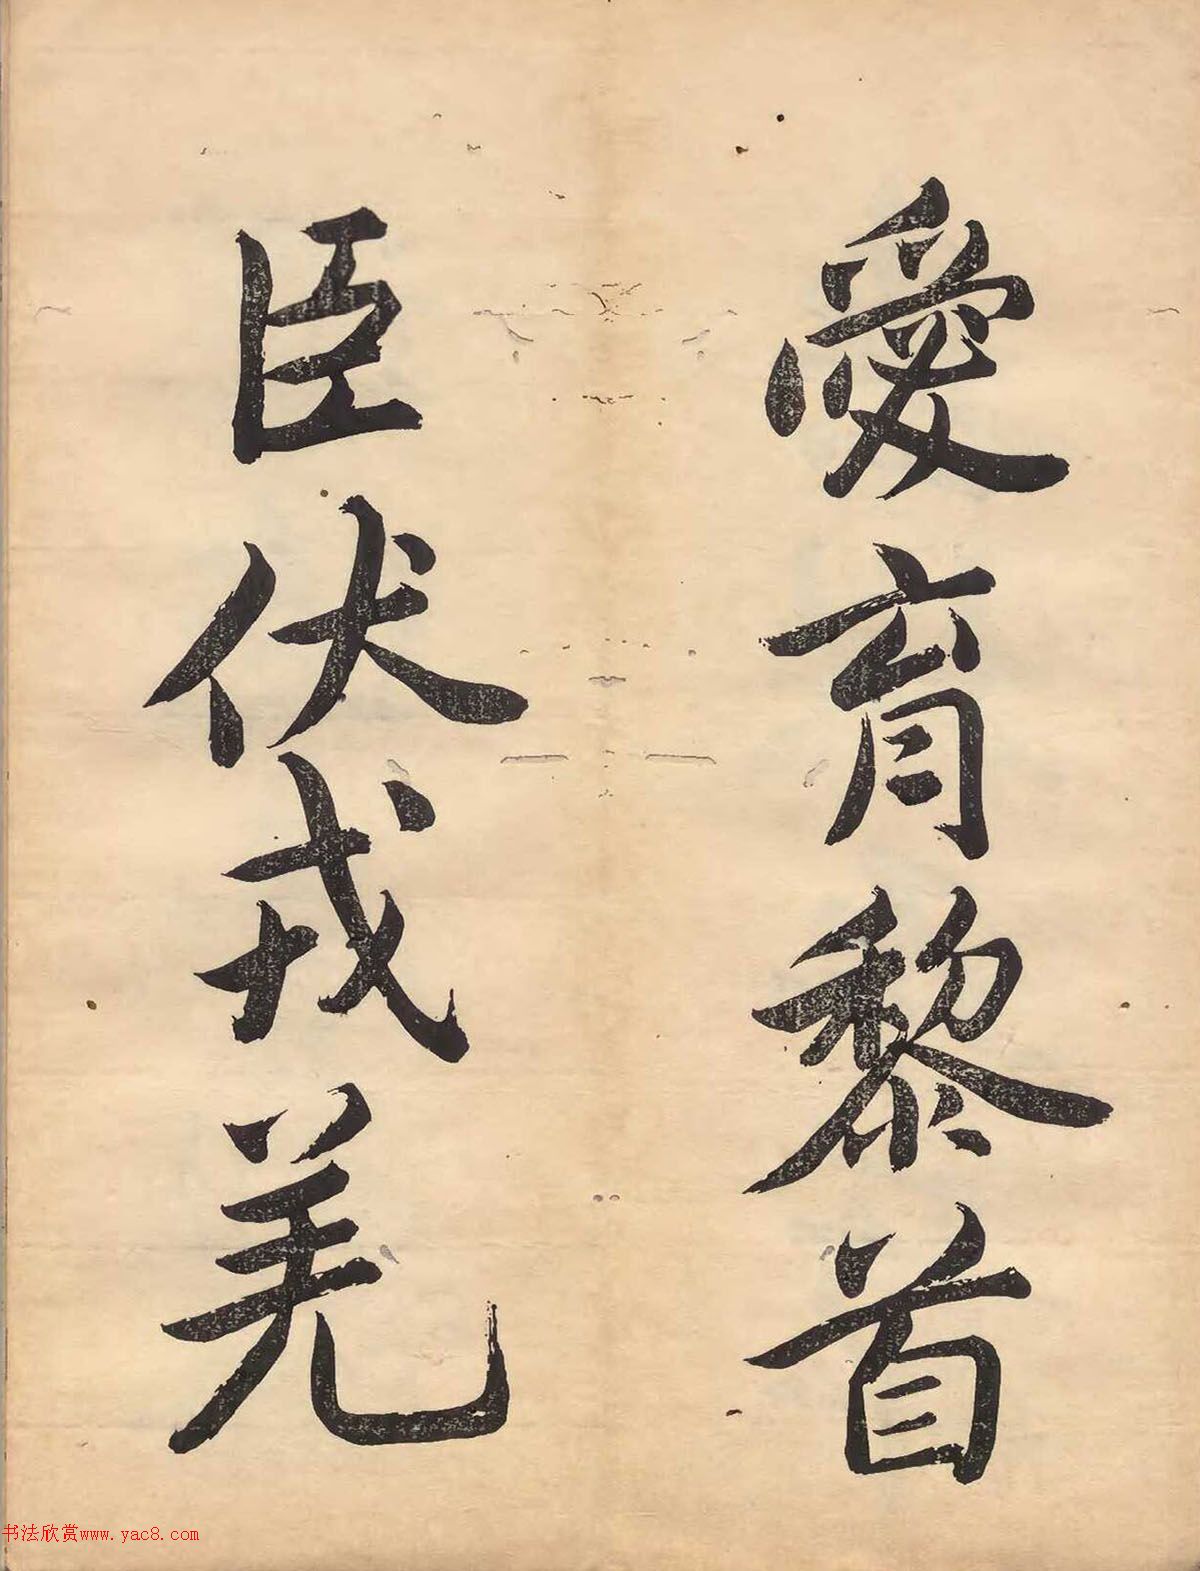 愛育黎首
臣伏戎羌
书法欣赏www.yac8.com